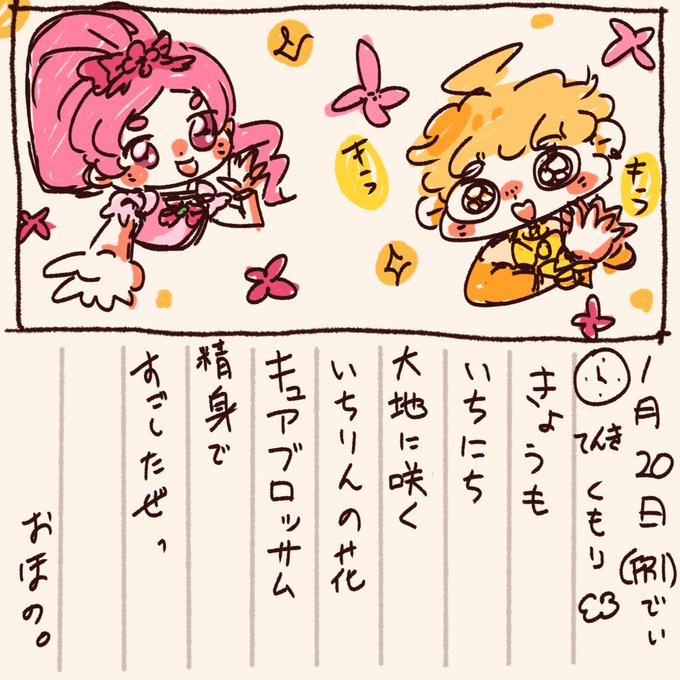 キラ
キラ
1月20日(別)でい
てんき くもり
きょうも
いちにち
大地に咲く
いちりんの花
キュアブロッサム
精身で
すごしたぜっ
おほの。